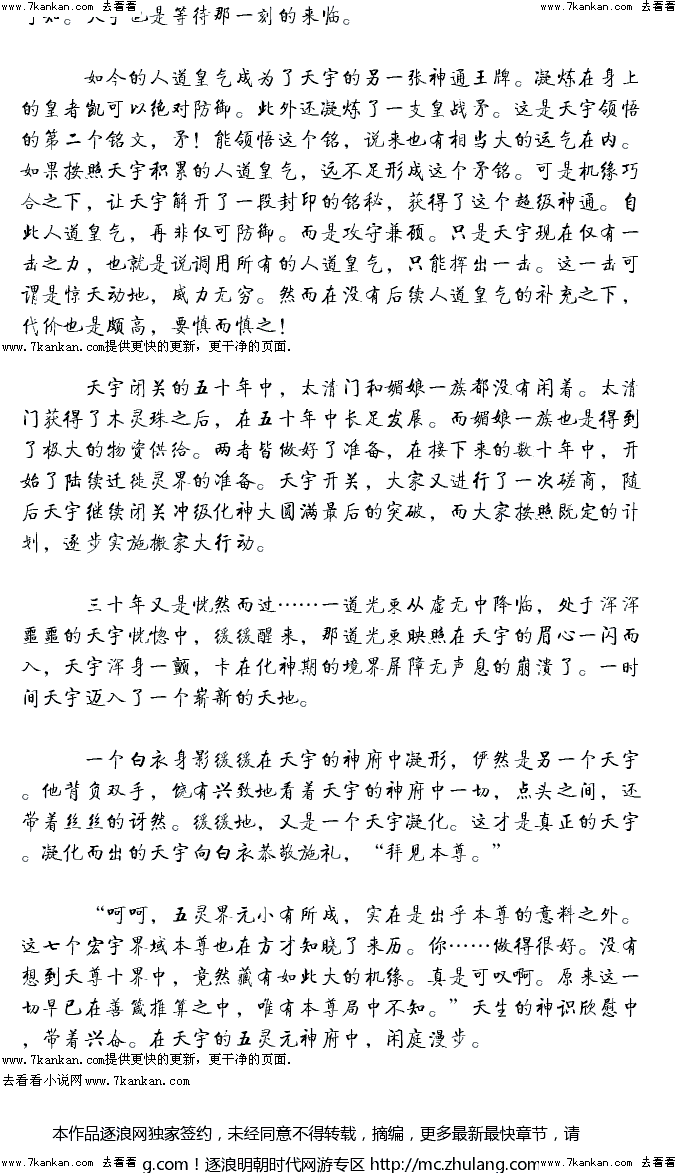 www.7kankan.com 去看看 www.7kankan.com 去看看
天宇也是等待那一刻的来临。
如今的人道皇气成为了天宇的另一张神通王牌。凝炼在身上
的皇者凯可以绝对防御。此外还凝炼了一支皇战矛。这是天宇领悟
的第二个铭文，矛！能领悟这个铭，说来也有相当大的运气在内。
如果按照天宇积累的人道皇气，远不足形成这个矛铭。可是机缘巧
合之下，让天宇解开了一段封印的铭秘，获得了这个超级神通。自
此人道皇气，再非仅可防御。而是攻守兼顾。只是天宇现在仅有一
击之力，也就是说调用所有的人道皇气，只能挥出一击。这一击可
谓是惊天动地，威力无穷。然而在没有后续人道皇气的补充之下，
代价也是颇高，要慎而慎之！
www.7kankan.com提供更快的更新，更干净的页面.
天宇闭关的五十年中，太清门和媚娘一族都没有闲着。太清
门获得了木灵珠之后，在五十年中长足发展。而媚娘一族也是得到
了极大的物资供给。两者皆做好了准备，在接下来的数十年中，开
始了陆续迁徙灵界的准备。天宇开关，大家又进行了一次磋商，随
后天宇继续闭关冲级化神大圆满最后的突破，而大家按照既定的计
划，逐步实施搬家大行动。
三十年又是恍然而过……一道光束从虚无中降临，处于浑浑
噩噩的天宇恍惚中，缓缓醒来，那道光束映照在天宇的眉心一闪而
入，天宇浑身一颤，卡在化神期的境界屏障无声息的崩溃了。一时
间天宇迈入了一个崭新的天地。
一个白衣身影缓缓在天宇的神府中凝形，俨然是另一个天宇
。他背负双手，饶有兴致地看着天宇的神府中一切，点头之间，还
带着丝丝的讶然。缓缓地，又是一个天宇凝化。这才是真正的天宇
。凝化而出的天宇向白衣恭敬施礼，“拜见本尊。”
“呵呵，五灵界元小有所成，实在是出乎本尊的意料之外。
这七个宏宇界域本尊也在方才知晓了来历。你……做得很好。没有
想到天尊十界中，竟然藏有如此大的机缘。真是可叹啊。原来这一
切早已在善箴推算之中，唯有本尊局中不知。”天生的神识欣慰中
，带着兴奋。在天宇的五灵元神府中，闲庭漫步。
www.7kankan.com提供更快的更新，更干净的页面.
去看看小说网www.7kankan.com
本作品逐浪网独家签约，未经同意不得转载，摘编，更多最新最快章节，请
www.7kankan.com 去看看 g.com！逐浪明朝时代网游专区 http://mc.zhulang.com www.7kankan.com 去看看